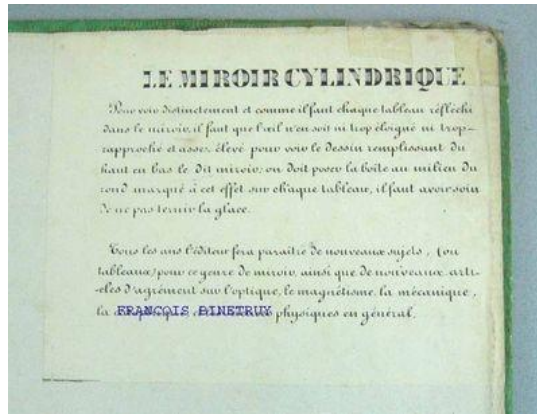 LE MIROIR CYLINDRIQUE
Pour voir distinctement et comme il faut chaque tableau réfléchi
dans le miroir, il faut que l'œil n'en soit ni trop éloigné ni trop-
rapproché et assez élevé pour voir le dessin remplissant du
haut en bas le dit miroir; on doit poser la boîte au milieu du
rond marqué à cet effet sur chaque tableau, il faut avoir soin
de ne pas ternir la glace.
Tous les ans l'éditeur fera paraître de nouveaux sujets, (ou
tableaux) pour ce genre de miroir, ainsi que de nouveaux arti-
-cles d'agrément sur l'optique, le magnétisme, la mécanique,
la physiques en général.
FRANCOIS BINETRUY